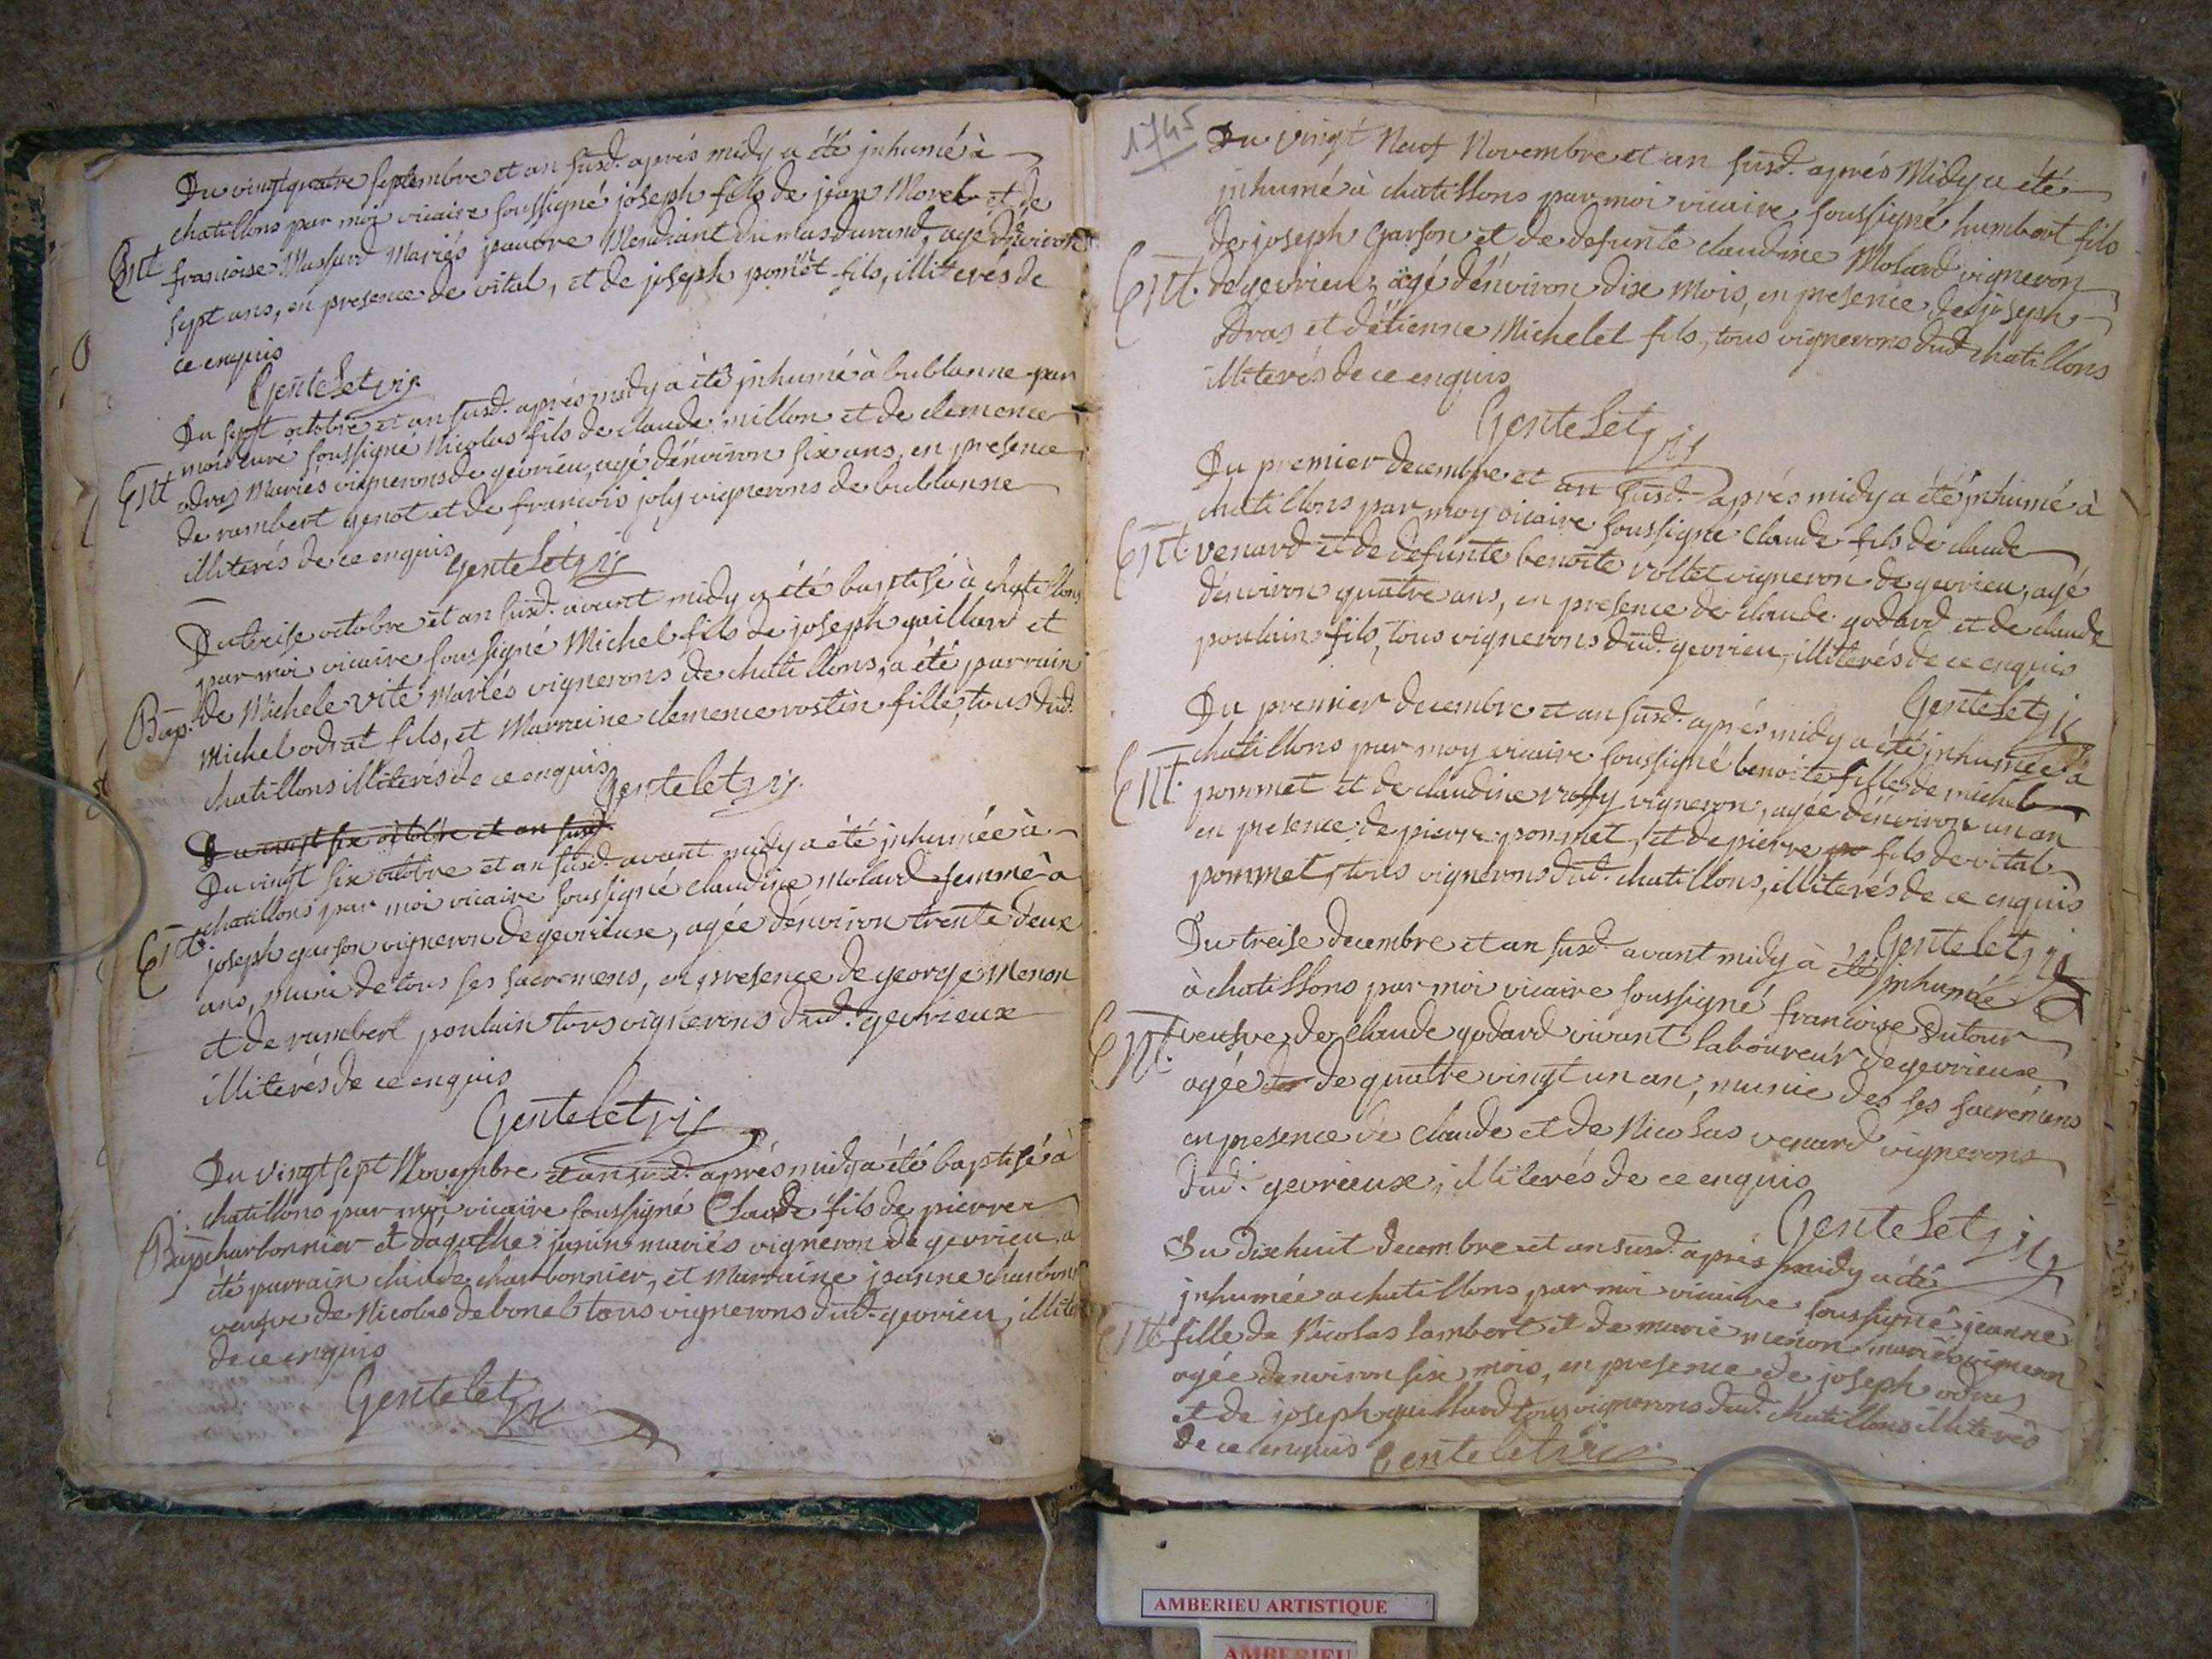 Du vingt quatre septembre et an susd. aprés midy a été jnhumé à
chatillons par moi vicaire soussigné joseph fils de jean Morel et de
Ent françoise Massard Mariés pauvre Mendiant du mas durand, agé d'environ
sept ans, en presence de vital, et de joseph pomët fils, illiterés de
ce enquis
Gentelet vic
Du sept octobre et an susd. aprés midy a èté jnhumé à bublanne par
moi vicaire soussigné Nicolas fils de claude millon et de clemence
Ent odras Mariés vignerons de gevrieu, agé d'environ six ans, en presence
de rambert genot et de francois joly vignerons de bublanne
illiterés de ce enquis
Gentelet vic
Du treise octobre et an susd. avant midy a été baptisé à chatillons
par moi vicaire soussigné Michel fils de joseph gaillard et
Bap. de Michele vite Mariés vignerons de chatillons, a été parrain
Michel odrat fils, et Marraine clemence rostin fille, tous dud.
chatillons illiterés de ce enquis
Gentelet vic.
Du vingt six octobre et an susd.
Du vingt six octobre et an susd. avant midy a été jnhumée à
chatillons par moi vicaire soussigné claudine molard femme à
Ent. joseph garson vigneron de gevrieux, agée d'environ trente deux
ans, munie de tous ses sacremens, en presence de george Menon
et de rambert poulain tous vignerons dud. gevrieux
illiterés de ce enquis
Gentelet vic
Du vingt sept Novembre et an susd. aprés midy a été baptisé à
chatillons par moi vicaire soussigné Claude fils de pierre
Bap. charbonnier et d'agathe jusin mariés vigneron de gevrieu, a
été parrain claude charbonnier, et Marraine jeanne charbon
veufve de Nicolas debonel tous vignerons dud. gevrieu, illite
de ce enquis
Gentelet vic
1745
Du vingt Neuf Novembre et an susd. aprés Midy a été
jnhumé à chatillons par moi vicaire soussigné humbert fils
de joseph Garson et de defunte claudine Molard vigneron
Ent. de gevrieu, agé d'environ dix Mois, en presence de joseph
odras et d'étienne Michelet fils, tous vignerons dud. chatillons
illiterés de ce enquis
Gentelet vic
Du premier decembre et an susd. aprés midy a été jnhumé à
chatillons par moy vicaire soussigné Claude fils de claude
Ent. venard et de defunte benoîte vollet vigneron de gevrieu, agé
d'environ quatre ans, en presence de claude godard et de claude
poulain fils, tous vignerons dud. gevrieu, illiterés de ce enquis
Gentelet vic
Du premier decembre et an susd. aprés midy a été jnhumée à
chatillons par moy vicaire soussigné benoite fille de michel
Ent. pommet et de claudine ruffy vigneron, agée d'environ un an
en presence de pierre pommet, et de pierre po fils de vital
pommet, tous vignerons dud. chatillons, illiterés de ce enquis
Gentelet vic
Du treise decembre et an susd. avant midy à été jnhumée
à chatillons par moi vicaire soussigné francoise Dutour
Ent. veufve de claude godard vivant laboureur de gevrieux
agée de quatre vingt un an, munie des ses sacremens
en presence de Claude et de Nicolas venard vignerons
dud. gevrieux, illiterés de ce enquis
Gentelet vic
Du dixhuit decembre et an susd. aprés midy a été
jnhumée a chatillons par moi vicaire soussigné jeanne
Ent. fille de Nicolas lambert et de marie menon mariés vigneron
agée d'environ six mois, en presence de joseph odras
et de joseph guillard tous vignerons dud. chatillons illiterés
de ce enquis Gentelet vic
AMBERIEU ARTISTIQUE
AMBERIEU